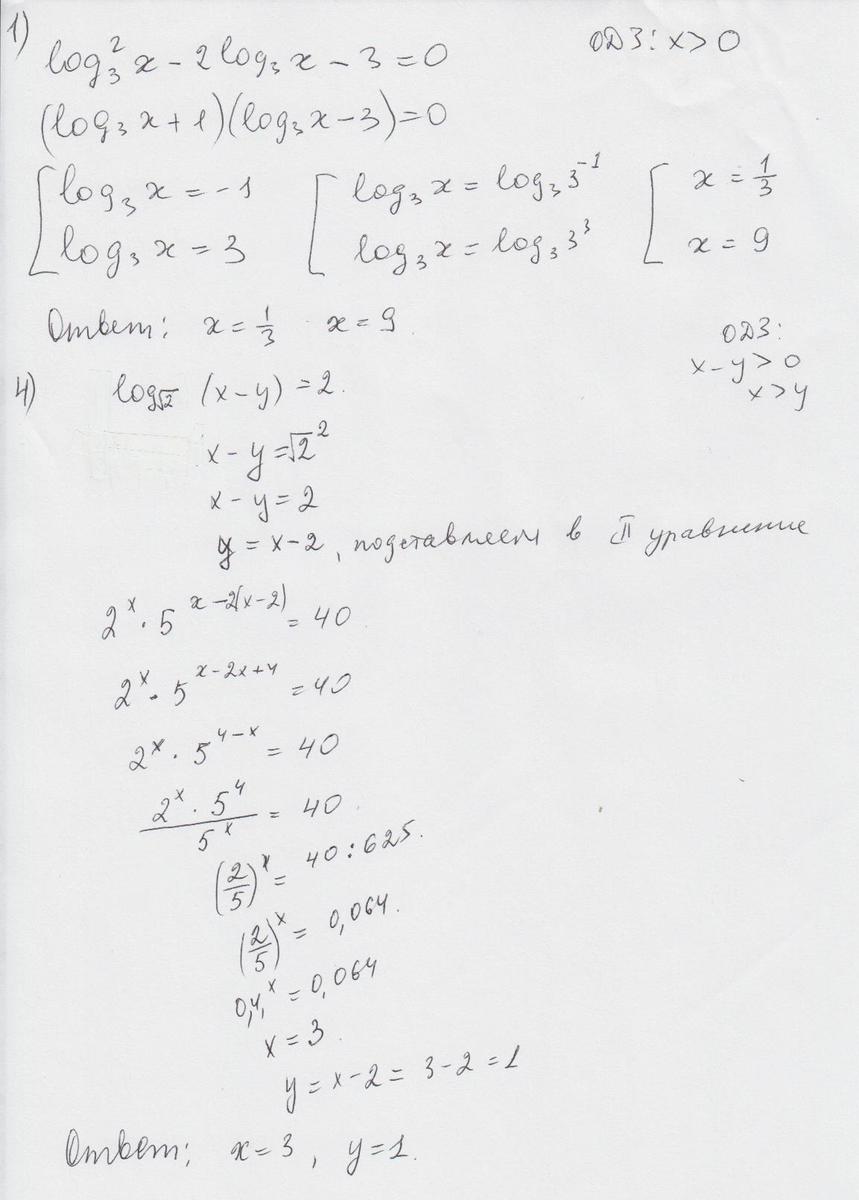 1) log₃²x − 2log₃x − 3 = 0 ОДЗ: x > 0
(log₃x + 1)(log₃x − 3) = 0
[ log₃x = −1 [ log₃x = log₃3⁻¹ [ x = 1/3
log₃x = 3 log₃x = log₃3³ x = 9
Ответ: x = 1/3 x = 9
4) log_√2 (x − y) = 2. ОДЗ:
x − y > 0
x > y
x − y = √2²
x − y = 2
y = x − 2, подставляем в II уравнение
2ˣ · 5^(x−2(x−2)) = 40
2ˣ · 5^(x−2x+4) = 40
2ˣ · 5^(4−x) = 40
(2ˣ · 5⁴)/5ˣ = 40
(2/5)ˣ = 40 : 625.
(2/5)ˣ = 0,064.
0,4ˣ = 0,064
x = 3.
y = x − 2 = 3 − 2 = 1
Ответ: x = 3, y = 1.